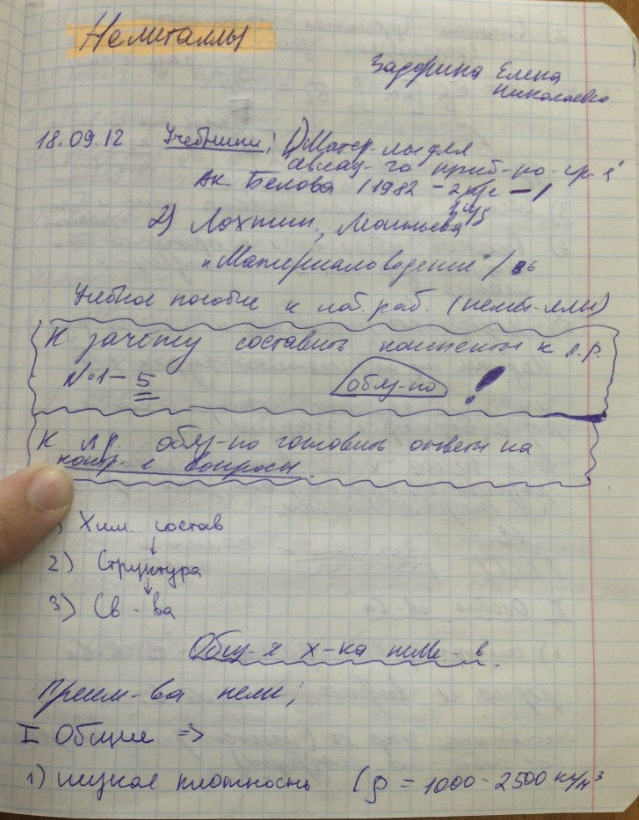 Неметаллы
Задорина Елена
Николаевна
18.09.12 Учебники: 1) Матер-лы для
авиац-го приб-
Ак Белова /1982 -
2) Лахтин, Леонтьева
"Материаловедение" /86
Учебное пособие к лаб. раб.
К зачёту составить конспекты к л.р.
№1-5 обяз-но !
К л.р. обяз-но готовить ответы на
контр-е вопросы.
1) Хим. состав
↓
2) Структура
↓
3) Св-ва
Общ-я х-ка неМе-в.
Преим-ва неМе:
I Общие =>
1) низкая плотность (ρ = 1000-2500 кг/м³